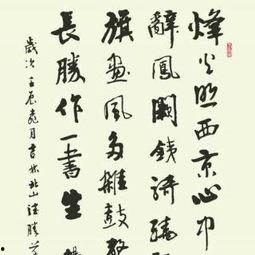 烽火照西京心中
辭鳳闕鐵騎繞
旗畫風多雜鼓聲
長勝作一書生 楊
歲次壬辰夏月書於北山